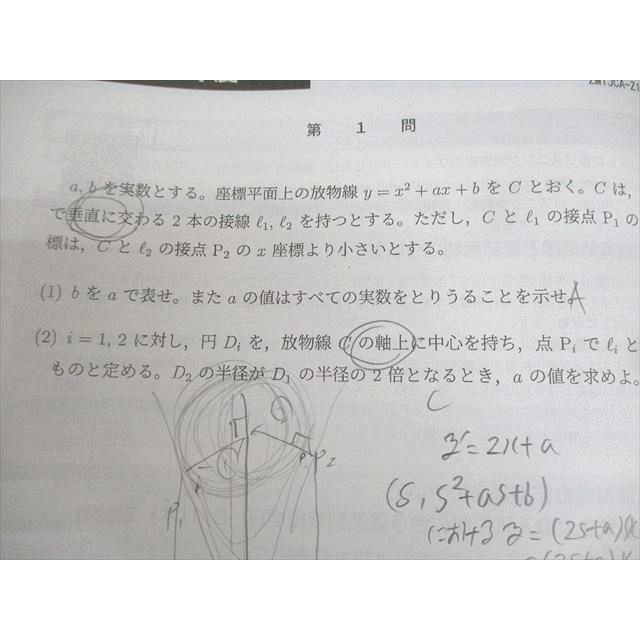 ZM1JCA-Z1
第 1 問
a, b を実数とする。座標平面上の放物線 y = x² + ax + b を C とおく。C は,
で垂直に交わる 2 本の接線 ℓ₁, ℓ₂ を持つとする。ただし, C と ℓ₁ の接点 P₁ の
標は, C と ℓ₂ の接点 P₂ の x 座標より小さいとする。
(1) b を a で表せ。また a の値はすべての実数をとりうることを示せ A
(2) i = 1, 2 に対し, 円 Dᵢ を, 放物線 C の軸上に中心を持ち, 点 Pᵢ で ℓᵢ と
ものと定める。D₂ の半径が D₁ の半径の 2 倍となるとき, a の値を求めよ。
C
y' = 2x + a
(s, s² + as + b)
における y = (2s+a)(x
P₁
P₂
② 
①